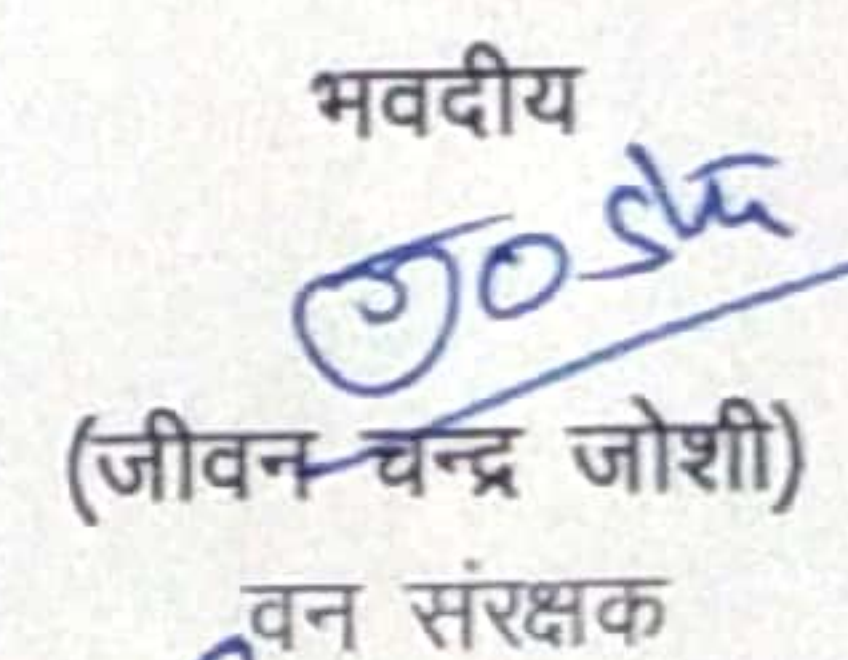 भवदीय
Joshi
(जीवन चन्द्र जोशी)
वन संरक्षक